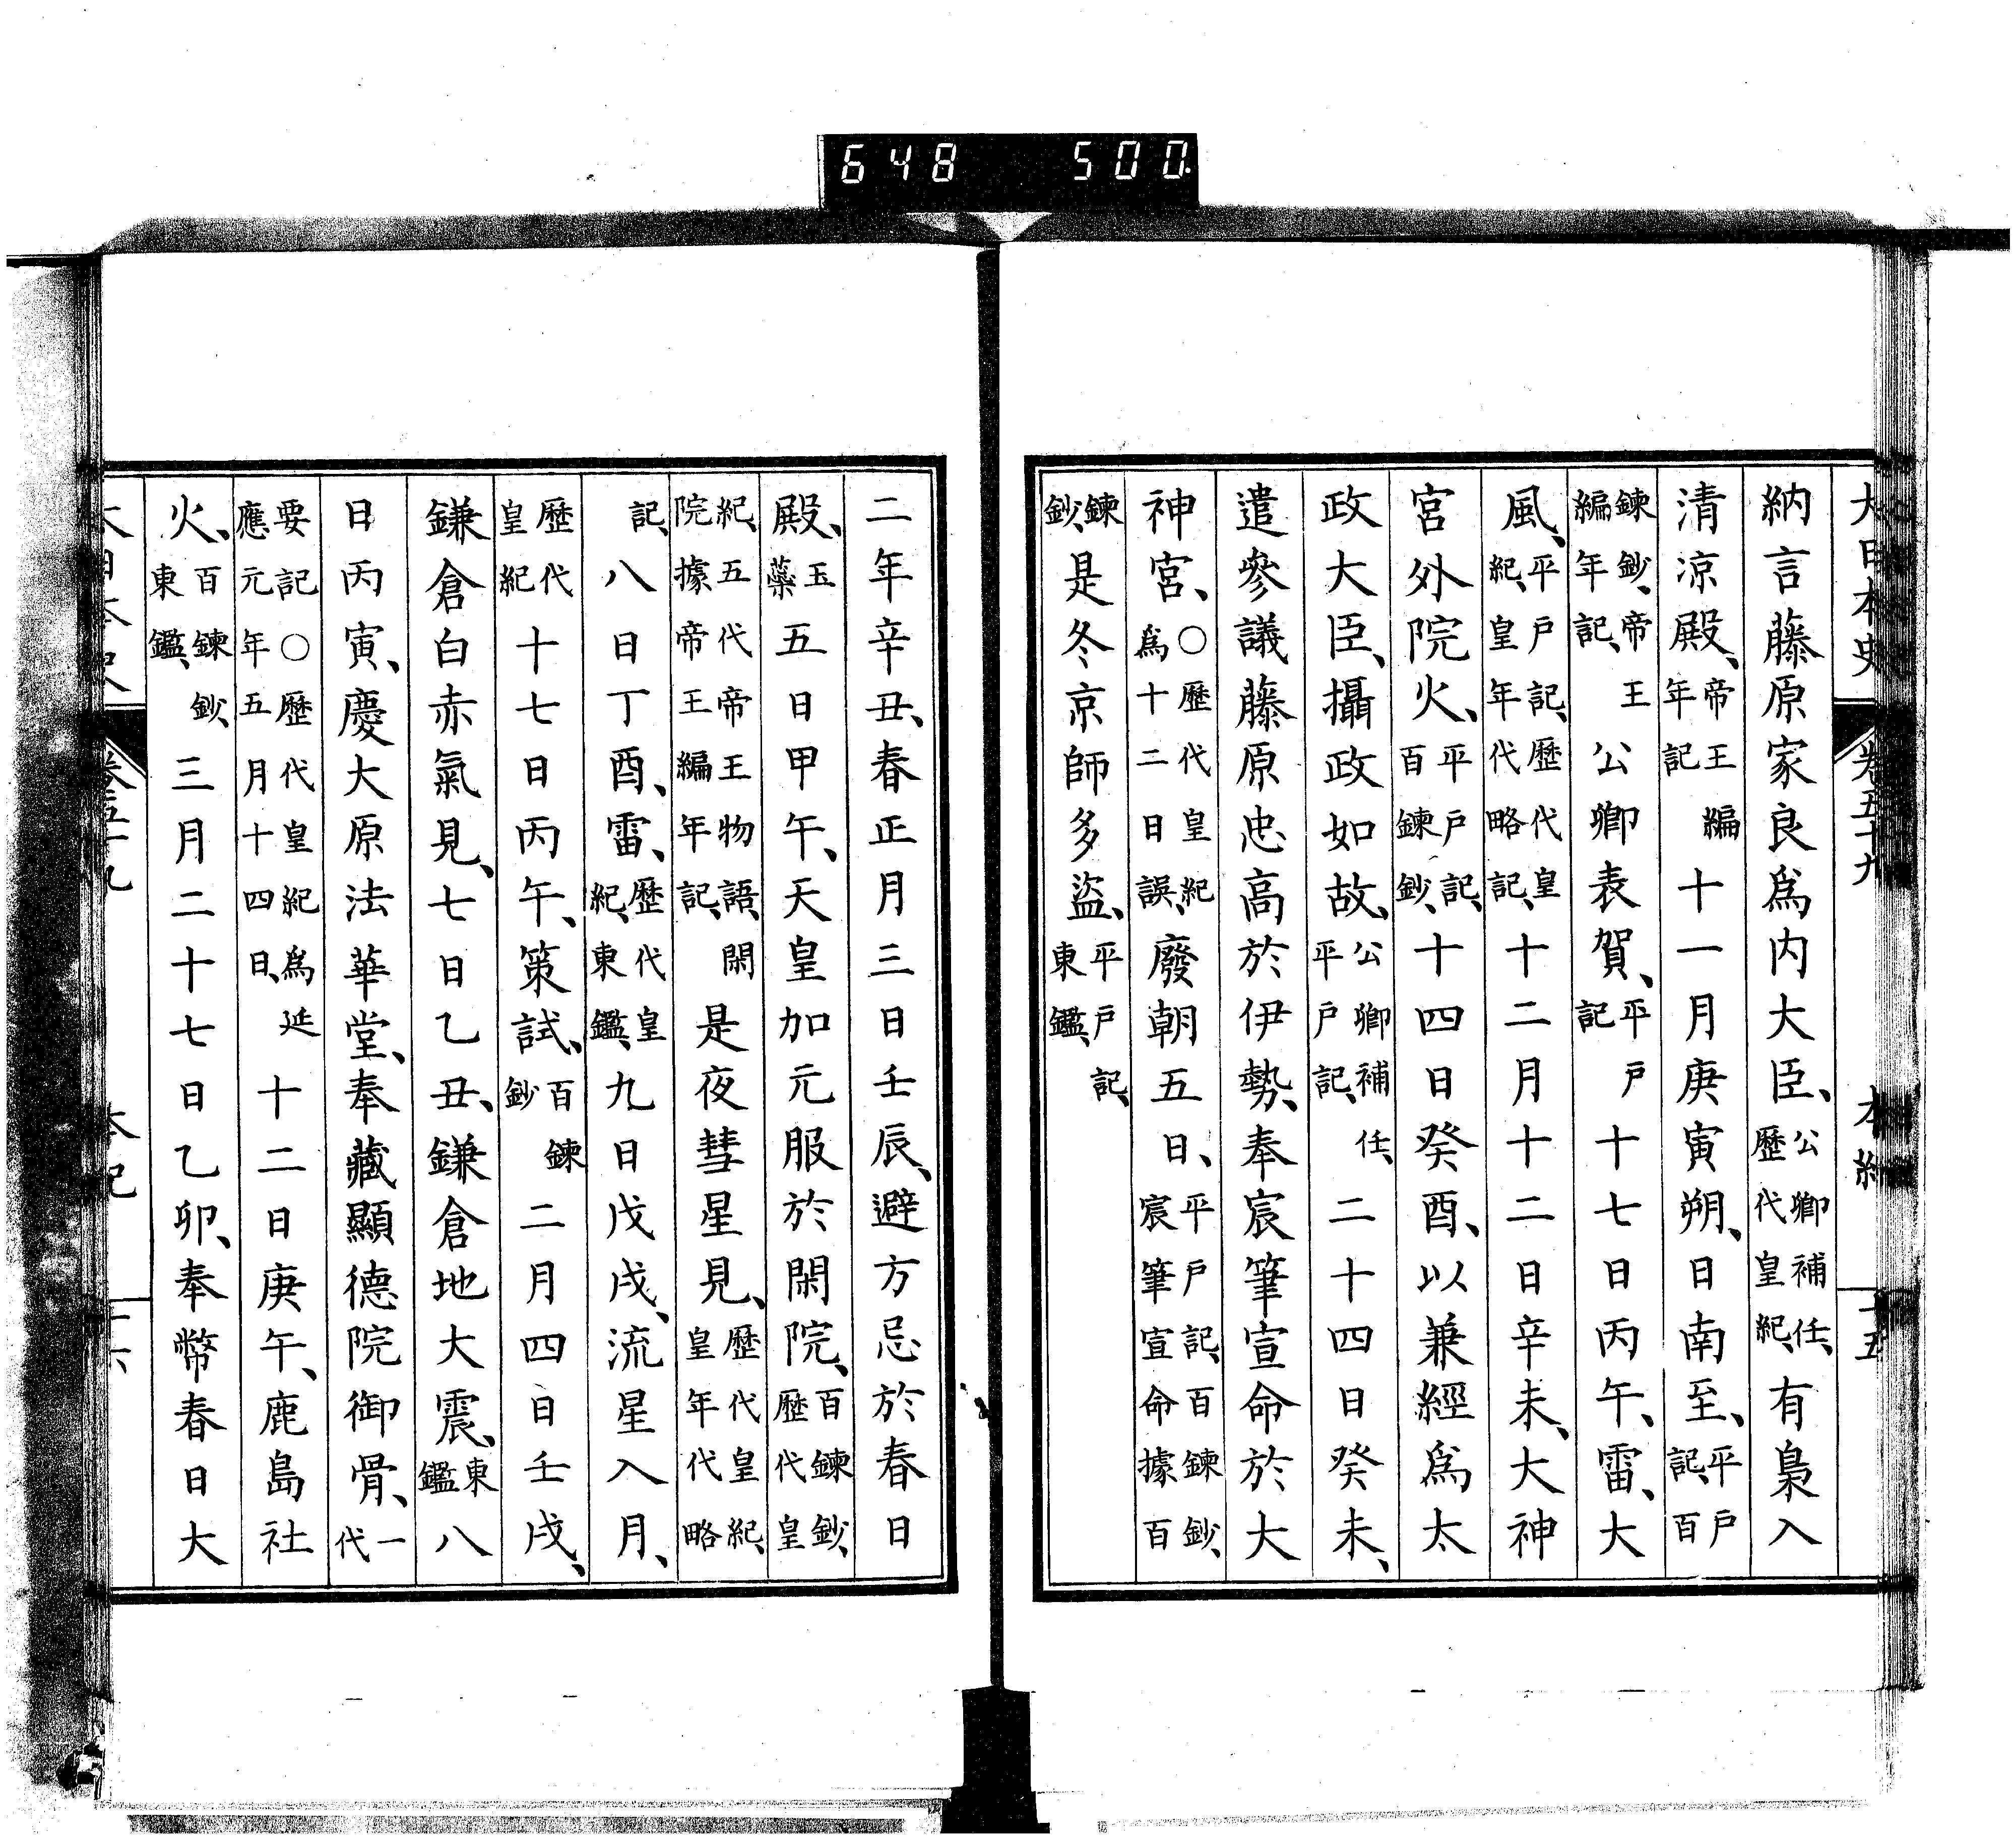 648 500
大日本史 卷五十九 本紀 十五
納言藤原家良爲内大臣、公卿補任、歷代皇紀、有梟入
清涼殿、帝王編年記十一月庚寅朔、日南至、平戸記、百
鍊鈔、帝王編年記、公卿表賀、平戸記十七日丙午、雷、大
風、平戸記、歷代皇紀、皇年代略記、十二月十二日辛未、大神
宮外院火、平戸記、百鍊鈔、十四日癸酉、以兼經爲太
政大臣、攝政如故、公卿補任、平戸記、二十四日癸未、
遣參議藤原忠高於伊勢、奉宸筆宣命於大
神宮、○歷代皇紀爲十二日誤、廢朝五日、平戸記、百鍊鈔、宸筆宣命據百
鍊鈔、是冬京師多盜、平戸記、東鑑、
二年辛丑、春正月三日壬辰、避方忌於春日
殿、玉蘂五日甲午、天皇加元服於閑院、百鍊鈔、歷代皇
紀、五代帝王物語、閑院據帝王編年記、是夜彗星見、歷代皇紀、皇年代略
記、八日丁酉、雷、歷代皇紀、東鑑、九日戊戌、流星入月、
歷代皇紀十七日丙午、策試、百鍊鈔二月四日壬戌、
鎌倉白赤氣見、七日乙丑、鎌倉地大震、東鑑八
日丙寅、慶大原法華堂、奉藏顯德院御骨、一代
要記○歷代皇紀爲延應元年五月十四日、十二日庚午、鹿島社
火、百鍊鈔、東鑑、三月二十七日乙卯、奉幣春日大
大日本史 卷五十九 本紀 十六